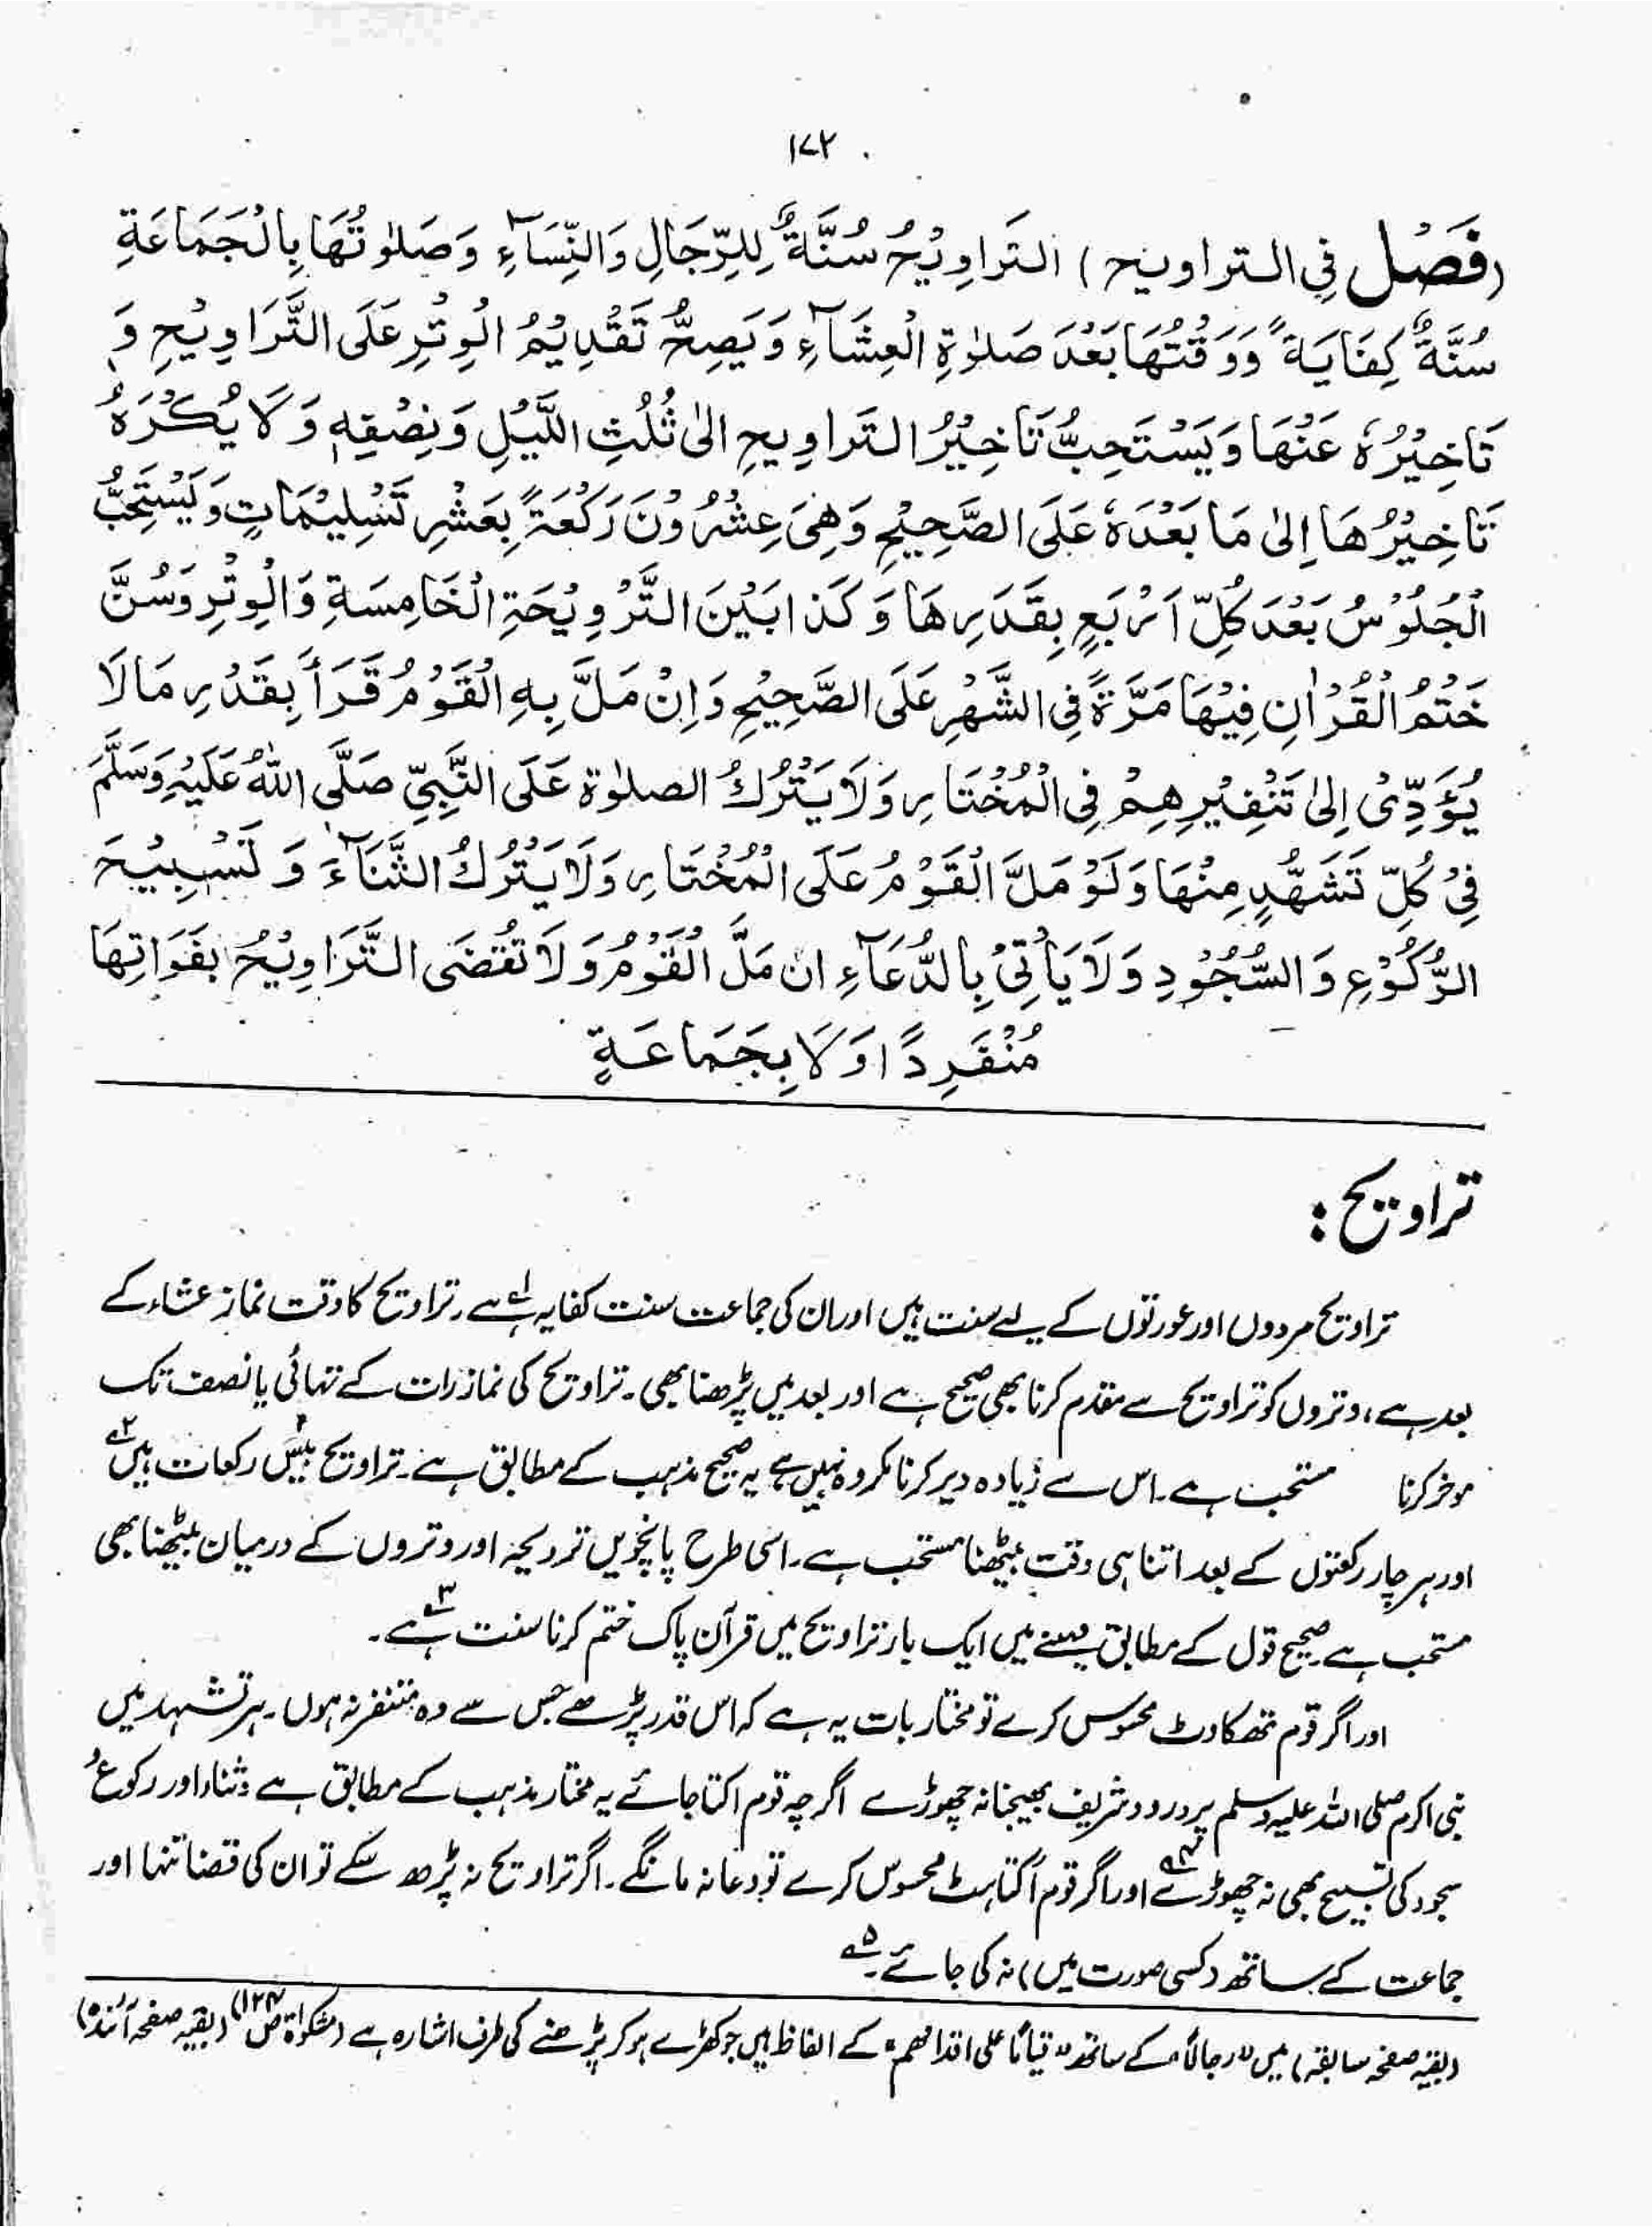 ۱۷۲
(فَصْل فِی التراویح) التَراوِیْحُ سُنَّةٌ لِلرِّجَالِ وَالنِّسَآءِ وَصَلٰوتُهَا بِالْجَمَاعَةِ
سُنَّةٌ کِفَایَةً وَوَقْتُهَا بَعْدَ صَلٰوةِ الْعِشَآءِ وَیَصِحُّ تَقْدِیْمُ الْوِتْرِ عَلَی التَّرَاوِیْحِ وَ
تَاخِیْرُهٗ عَنْهَا وَیَسْتَحِبُّ تَاخِیْرُ التَراوِیحِ اِلیٰ ثُلُثِ اللَّیْلِ وَنِصْفِهٖ وَلَا یُکْرَهُ
تَاخِیْرُهَا اِلیٰ مَا بَعْدَهٗ عَلَی الصَّحِیْحِ وَهِیَ عِشْرُوْنَ رَکْعَةً بِعَشْرِ تَسْلِیْمَاتٍ وَیَسْتَحِبُّ
الْجُلُوْسُ بَعْدَ کُلِّ اَرْبَعٍ بِقَدَرِهَا وَکَذَا بَیْنَ التَّرْوِیْحَةِ الْخَامِسَةِ وَالْوِتْرِ وَسُنَّ
خَتْمُ الْقُرْاٰنِ فِیْهَا مَرَّةً فِی الشَّهْرِ عَلَی الصَّحِیْحِ وَاِنْ مَلَّ بِهِ الْقَوْمُ قَرَأَ بِقَدْرِ مَالَا
یُؤَدِّیْ اِلیٰ تَنْفِیْرِهِمْ فِی الْمُخْتَارِ وَلَا یَتْرُكُ الصلوٰة عَلَی النَّبِیِّ صَلَّی اللهُ عَلَیْهِ وَسَلَّمَ
فِیْ کُلِّ تَشَهُّدٍ مِنْهَا وَلَوْ مَلَّ الْقَوْمُ عَلَی الْمُخْتَارِ وَلَا یَتْرُكُ الثَّنَآءَ وَ تَسْبِیْحَ
الرُّکُوْعِ وَالسُّجُوْدِ وَلَا یَأْتِیْ بِالدُّعَآءِ ان مَلَّ الْقَوْمُ وَلَا تُقْضَی التَّرَاوِیْحُ بِفَوَاتِهَا
مُنْفَرِدًا وَلَا بِجَمَاعَةٍ
تراویح :
تراویح مردوں اور عورتوں کے لیے سنت ہیں اور ان کی جماعت سنت کفایہ ہے۱؎۔ تراویح کا وقت نماز عشاء کے
بعد ہے، وتروں کو تراویح سے مقدم کرنا بھی صحیح ہے اور بعد میں پڑھنا بھی۔ تراویح کی نماز رات کے تہائی یا نصف تک
موخر کرنا مستحب ہے۔ اس سے زیادہ دیر کرنا مکروہ نہیں ہے یہ صحیح مذہب کے مطابق ہے۔ تراویح بیس رکعات ہیں۲؎
اور ہر چار رکعتوں کے بعد اتنا ہی وقت بیٹھنا مستحب ہے۔ اسی طرح پانچویں ترویحہ اور وتروں کے درمیان بیٹھنا بھی
مستحب ہے صحیح قول کے مطابق مہینے میں ایک بار تراویح میں قرآن پاک ختم کرنا سنت ہے۳؎۔
اور اگر قوم تھکاوٹ محسوس کرے تو مختار بات یہ ہے کہ اس قدر پڑھے جس سے وہ متنفر نہ ہوں۔ ہر تشہد میں
نبی اکرم صلی اللہ علیہ وسلم پر درود شریف بھیجنا نہ چھوڑے اگرچہ قوم اکتا جائے یہ مختار مذہب کے مطابق ہے ثناء اور رکوع و
سجود کی تسبیح بھی نہ چھوڑے۴؎ اور اگر قوم اُکتاہٹ محسوس کرے تو دعا نہ مانگے۔ اگر تراویح نہ پڑھ سکے تو ان کی قضا تنہا اور
جماعت کے ساتھ (کسی صورت میں) نہ کی جائے۔۵؎
(بقیہ صفحہ سابقہ) میں "رجالًا" کے ساتھ "قیامًا علی اقدامھم" کے الفاظ ہیں جو کھڑے ہو کر پڑھنے کی طرف اشارہ ہے (مشکوٰۃ ص ۱۲۴) (بقیہ صفحہ آئندہ)